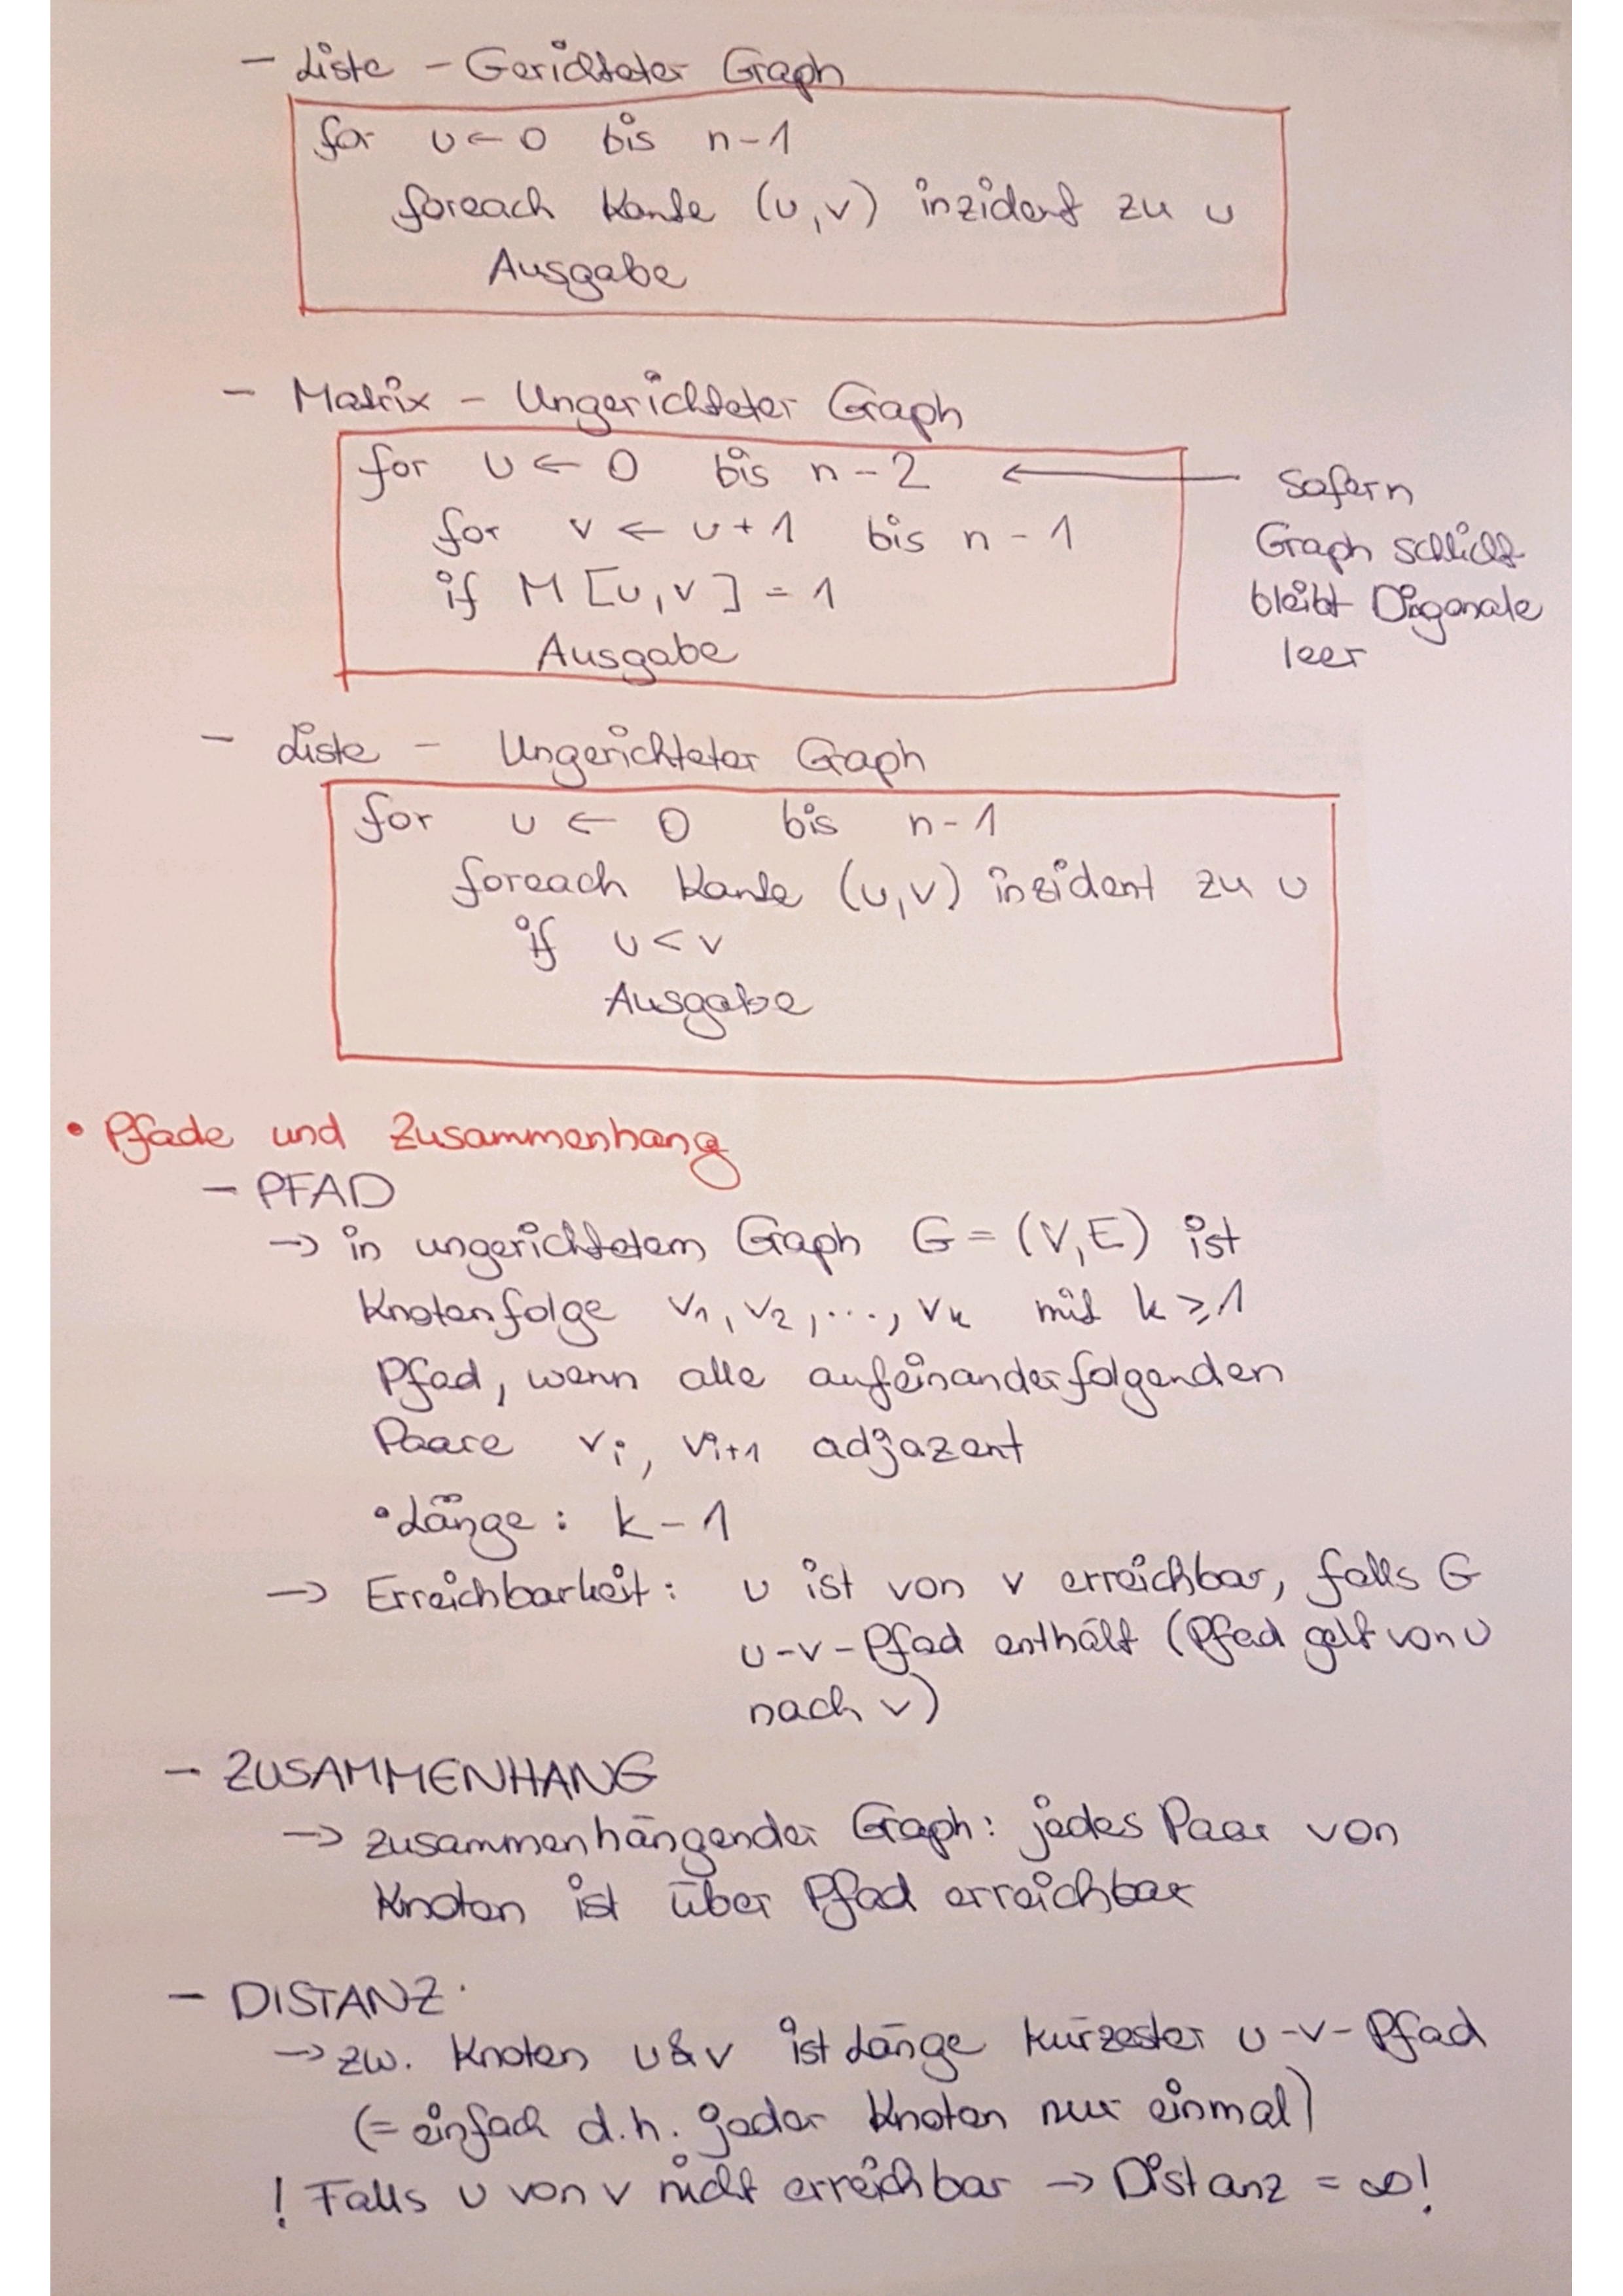 - Liste - Gerichteter Graph
for u ← 0 bis n-1
foreach Kante (u,v) inzident zu u
Ausgabe
- Matrix - Ungerichteter Graph
for u ← 0 bis n-2 ←
for v ← u+1 bis n-1
if M[u,v] = 1
Ausgabe
sofern
Graph schlicht
bleibt Diagonale
leer
- Liste - Ungerichteter Graph
for u ← 0 bis n-1
foreach Kante (u,v) inzident zu u
if u < v
Ausgabe
• Pfade und Zusammenhang
- PFAD
→ in ungerichtetem Graph G = (V,E) ist
Knotenfolge v₁, v₂, ..., vₖ mit k ≥ 1
Pfad, wenn alle aufeinanderfolgenden
Paare vᵢ, vᵢ₊₁ adjazent
• Länge: k-1
→ Erreichbarkeit: u ist von v erreichbar, falls G
u-v-Pfad enthält (Pfad geht von u
nach v)
- ZUSAMMENHANG
→ zusammenhängender Graph: jedes Paar von
Knoten ist über Pfad erreichbar
- DISTANZ
→ zw. Knoten u & v ist Länge kürzester u-v-Pfad
(= einfach d.h. jeder Knoten nur einmal)
! Falls u von v nicht erreichbar → Distanz = ∞!